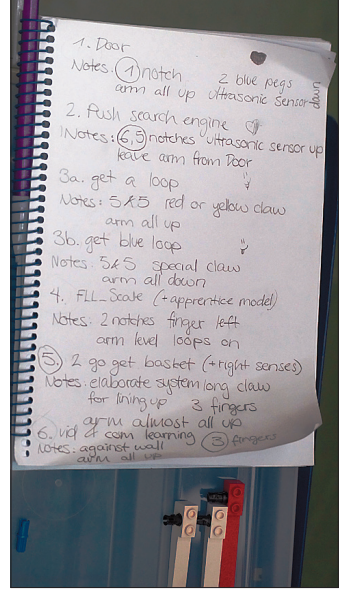 1. Door
Notes: 1 notch 2 blue pegs
arm all up ultrasonic sensor down
2. Push search engine
Notes: 6,5 notches ultrasonic sensor up
leave arm from Door
3a. get a loop
Notes: 5&5 red or yellow claw
arm all up
3b. get blue loop
Notes: 5&5 special claw
arm all down
4. FLL_Scale (+apprentice model)
Notes: 2 notches finger left
arm level loops on
5 2 go get basket (+right senses)
Notes: elaborate system long claw
for lining up 3 fingers
arm almost all up
6. vid & com learning 3 fingers
Notes: against wall
arm all up